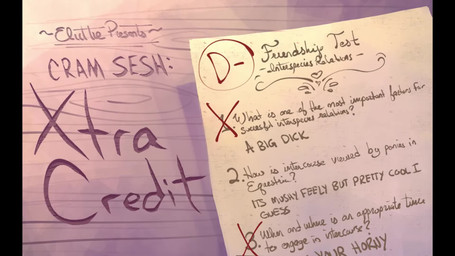 ~Elutke Presents~
CRAM SESH:
Xtra
Credit
D-
Friendship Test
-Interspecies Relations-
1. What is one of the most important factors for
successful interspecies relations?
A BIG DICK
2. How is intercourse viewed by ponies in
Equestria?
ITS MUSHY FEELY BUT PRETTY COOL I
GUESS
3. When and where is an appropriate time
to engage in intercourse?
YOUR HORNY